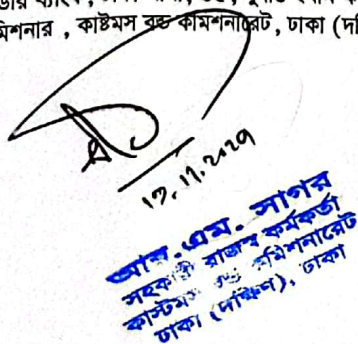 মিশনার , কাষ্টমস বন্ড কমিশনারেট , ঢাকা (দক্ষি
১৭.১১.২০২৭
আর.এম. সাগর
সহকারী রাজস্ব কর্মকর্তা
কাস্টমস বন্ড কমিশনারেট
ঢাকা (দক্ষিণ), ঢাকা